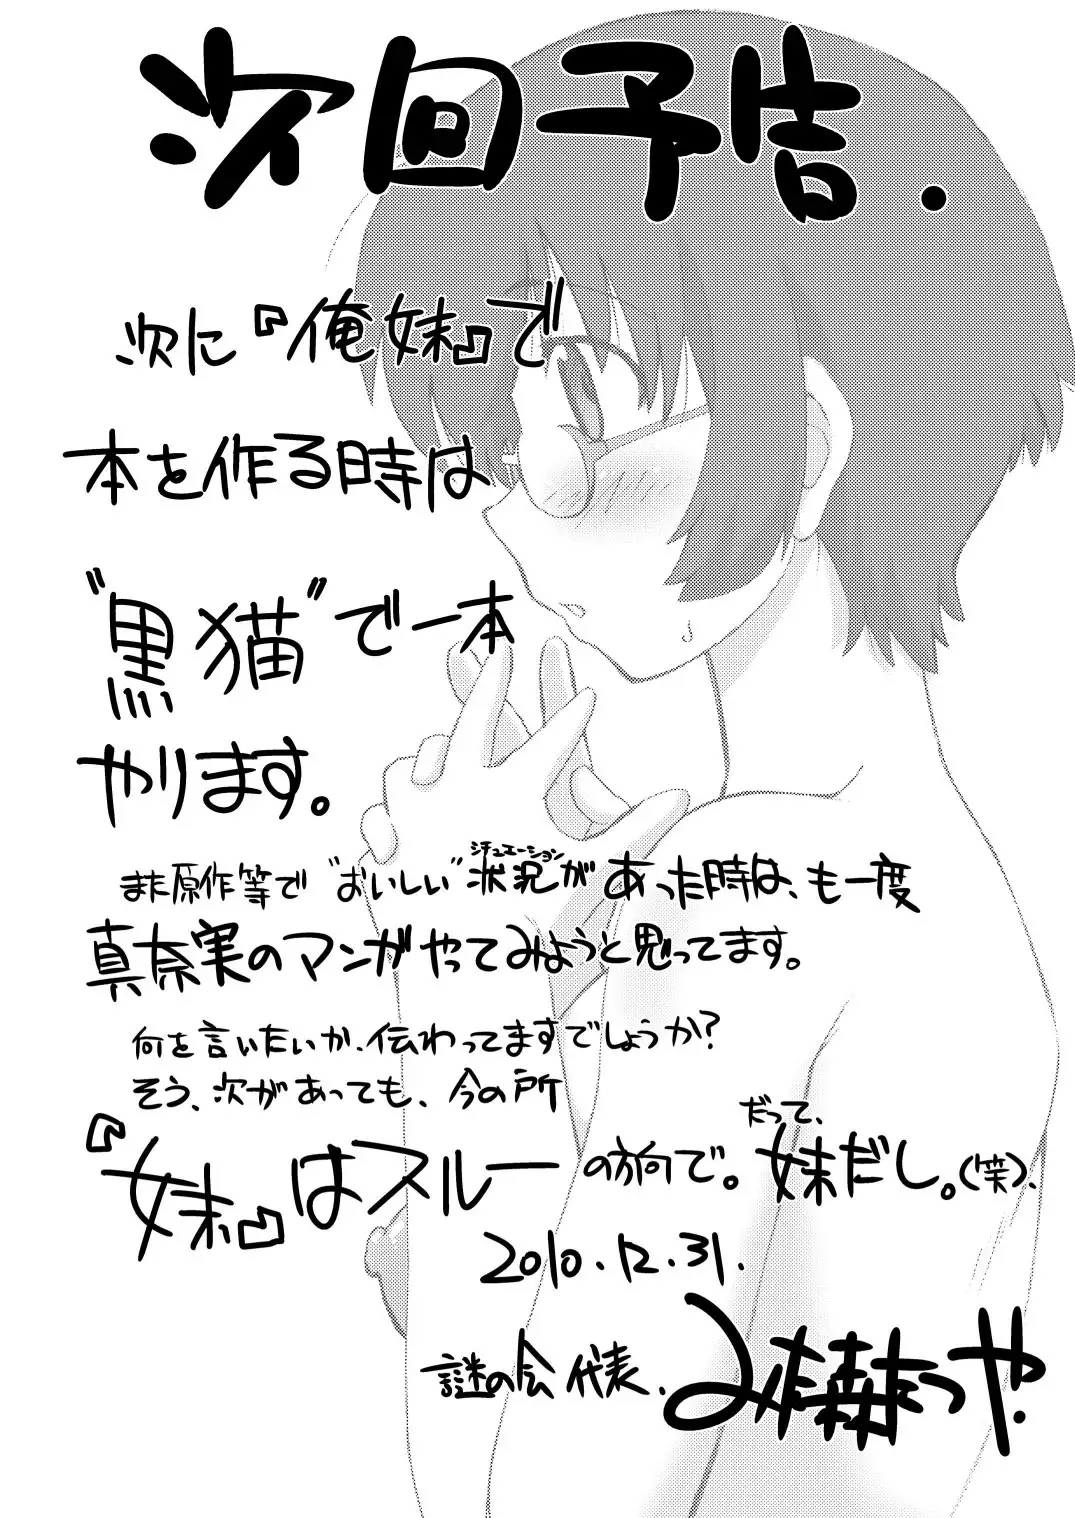 次回予告.
次に『俺妹』で
本を作る時は
"黒猫"で一本
やります。
また原作等で"おいしい"状況があった時は、も一度
シチュエーション
真奈実のマンガやってみようと思ってます。
何を言いたいか、伝わってますでしょうか?
そう、次があっても、今の所
『妹』はスルーの方向で。だって、妹だし。(笑)、
2010.12.31.
謎の会代表、